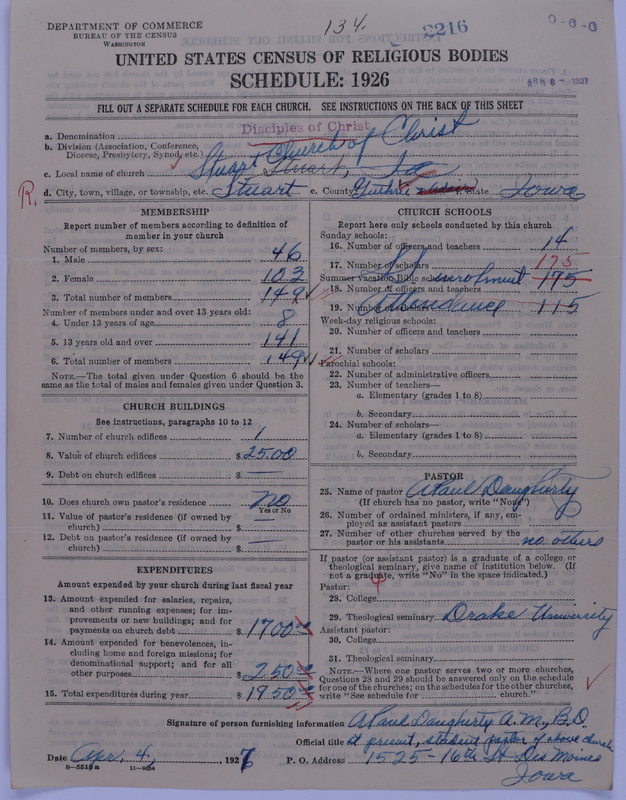 DEPARTMENT OF COMMERCE
BUREAU OF THE CENSUS
WASHINGTON
134.
2216
0-6-0
UNITED STATES CENSUS OF RELIGIOUS BODIES
SCHEDULE: 1926
1927
FILL OUT A SEPARATE SCHEDULE FOR EACH CHURCH. SEE INSTRUCTIONS ON THE BACK OF THIS SHEET
Disciples of Christ
a. Denomination Church of Christ
b. Division (Association, Conference,
Diocese, Presbytery, Synod, etc.)
c. Local name of church Stuart Stuart, Ia
R.
d. City, town, village, or township, etc. Stuart e. County Guthrie f. State Iowa
MEMBERSHIP
Report number of members according to definition of
member in your church
Number of members, by sex:
1. Male 46
2. Female 103
3. Total number of members 149
Number of members under and over 13 years old:
4. Under 13 years of age 8
5. 13 years old and over 141
6. Total number of members 149
NOTE.—The total given under Question 6 should be the
same as the total of males and females given under Question 3.
CHURCH BUILDINGS
See instructions, paragraphs 10 to 12
7. Number of church edifices 1
8. Value of church edifices $2500
9. Debt on church edifices $ —
10. Does church own pastor's residence no
Yes or No
11. Value of pastor's residence (if owned by
church) $ —
12. Debt on pastor's residence (if owned by
church) $ —
EXPENDITURES
Amount expended by your church during last fiscal year
13. Amount expended for salaries, repairs,
and other running expenses; for im-
provements or new buildings; and for
payments on church debt $1700.00
14. Amount expended for benevolences, in-
cluding home and foreign missions; for
denominational support; and for all
other purposes $250.00
15. Total expenditures during year $1950.00
CHURCH SCHOOLS
Report here only schools conducted by this church
Sunday schools:
16. Number of officers and teachers 14
17. Number of scholars 175
Summer vacation Bible schools: enrolment 175
18. Number of officers and teachers
19. Number of scholars Attendance 115
Week-day religious schools:
20. Number of officers and teachers
21. Number of scholars
Parochial schools:
22. Number of administrative officers
23. Number of teachers—
a. Elementary (grades 1 to 8)
b. Secondary
24. Number of scholars—
a. Elementary (grades 1 to 8)
b. Secondary
PASTOR
25. Name of pastor A Paul Daugherty
(If church has no pastor, write "None")
26. Number of ordained ministers, if any, em-
ployed as assistant pastors
27. Number of other churches served by the
pastor or his assistants no others
If pastor (or assistant pastor) is a graduate of a college or
theological seminary, give name of institution below. (If
not a graduate, write "No" in the space indicated.)
Pastor:
28. College
29. Theological seminary Drake University
Assistant pastor:
30. College
31. Theological seminary
NOTE.—Where one pastor serves two or more churches,
Questions 28 and 29 should be answered only on the schedule
for one of the churches; on the schedules for the other churches,
write "See schedule for church."
Signature of person furnishing information A Paul Daugherty A.M., B.D.
Official title at present, student pastor of above church
Date Apr. 4, 1927 P. O. Address 1525-16th St Des Moines
Iowa
8-5518a 11-9264